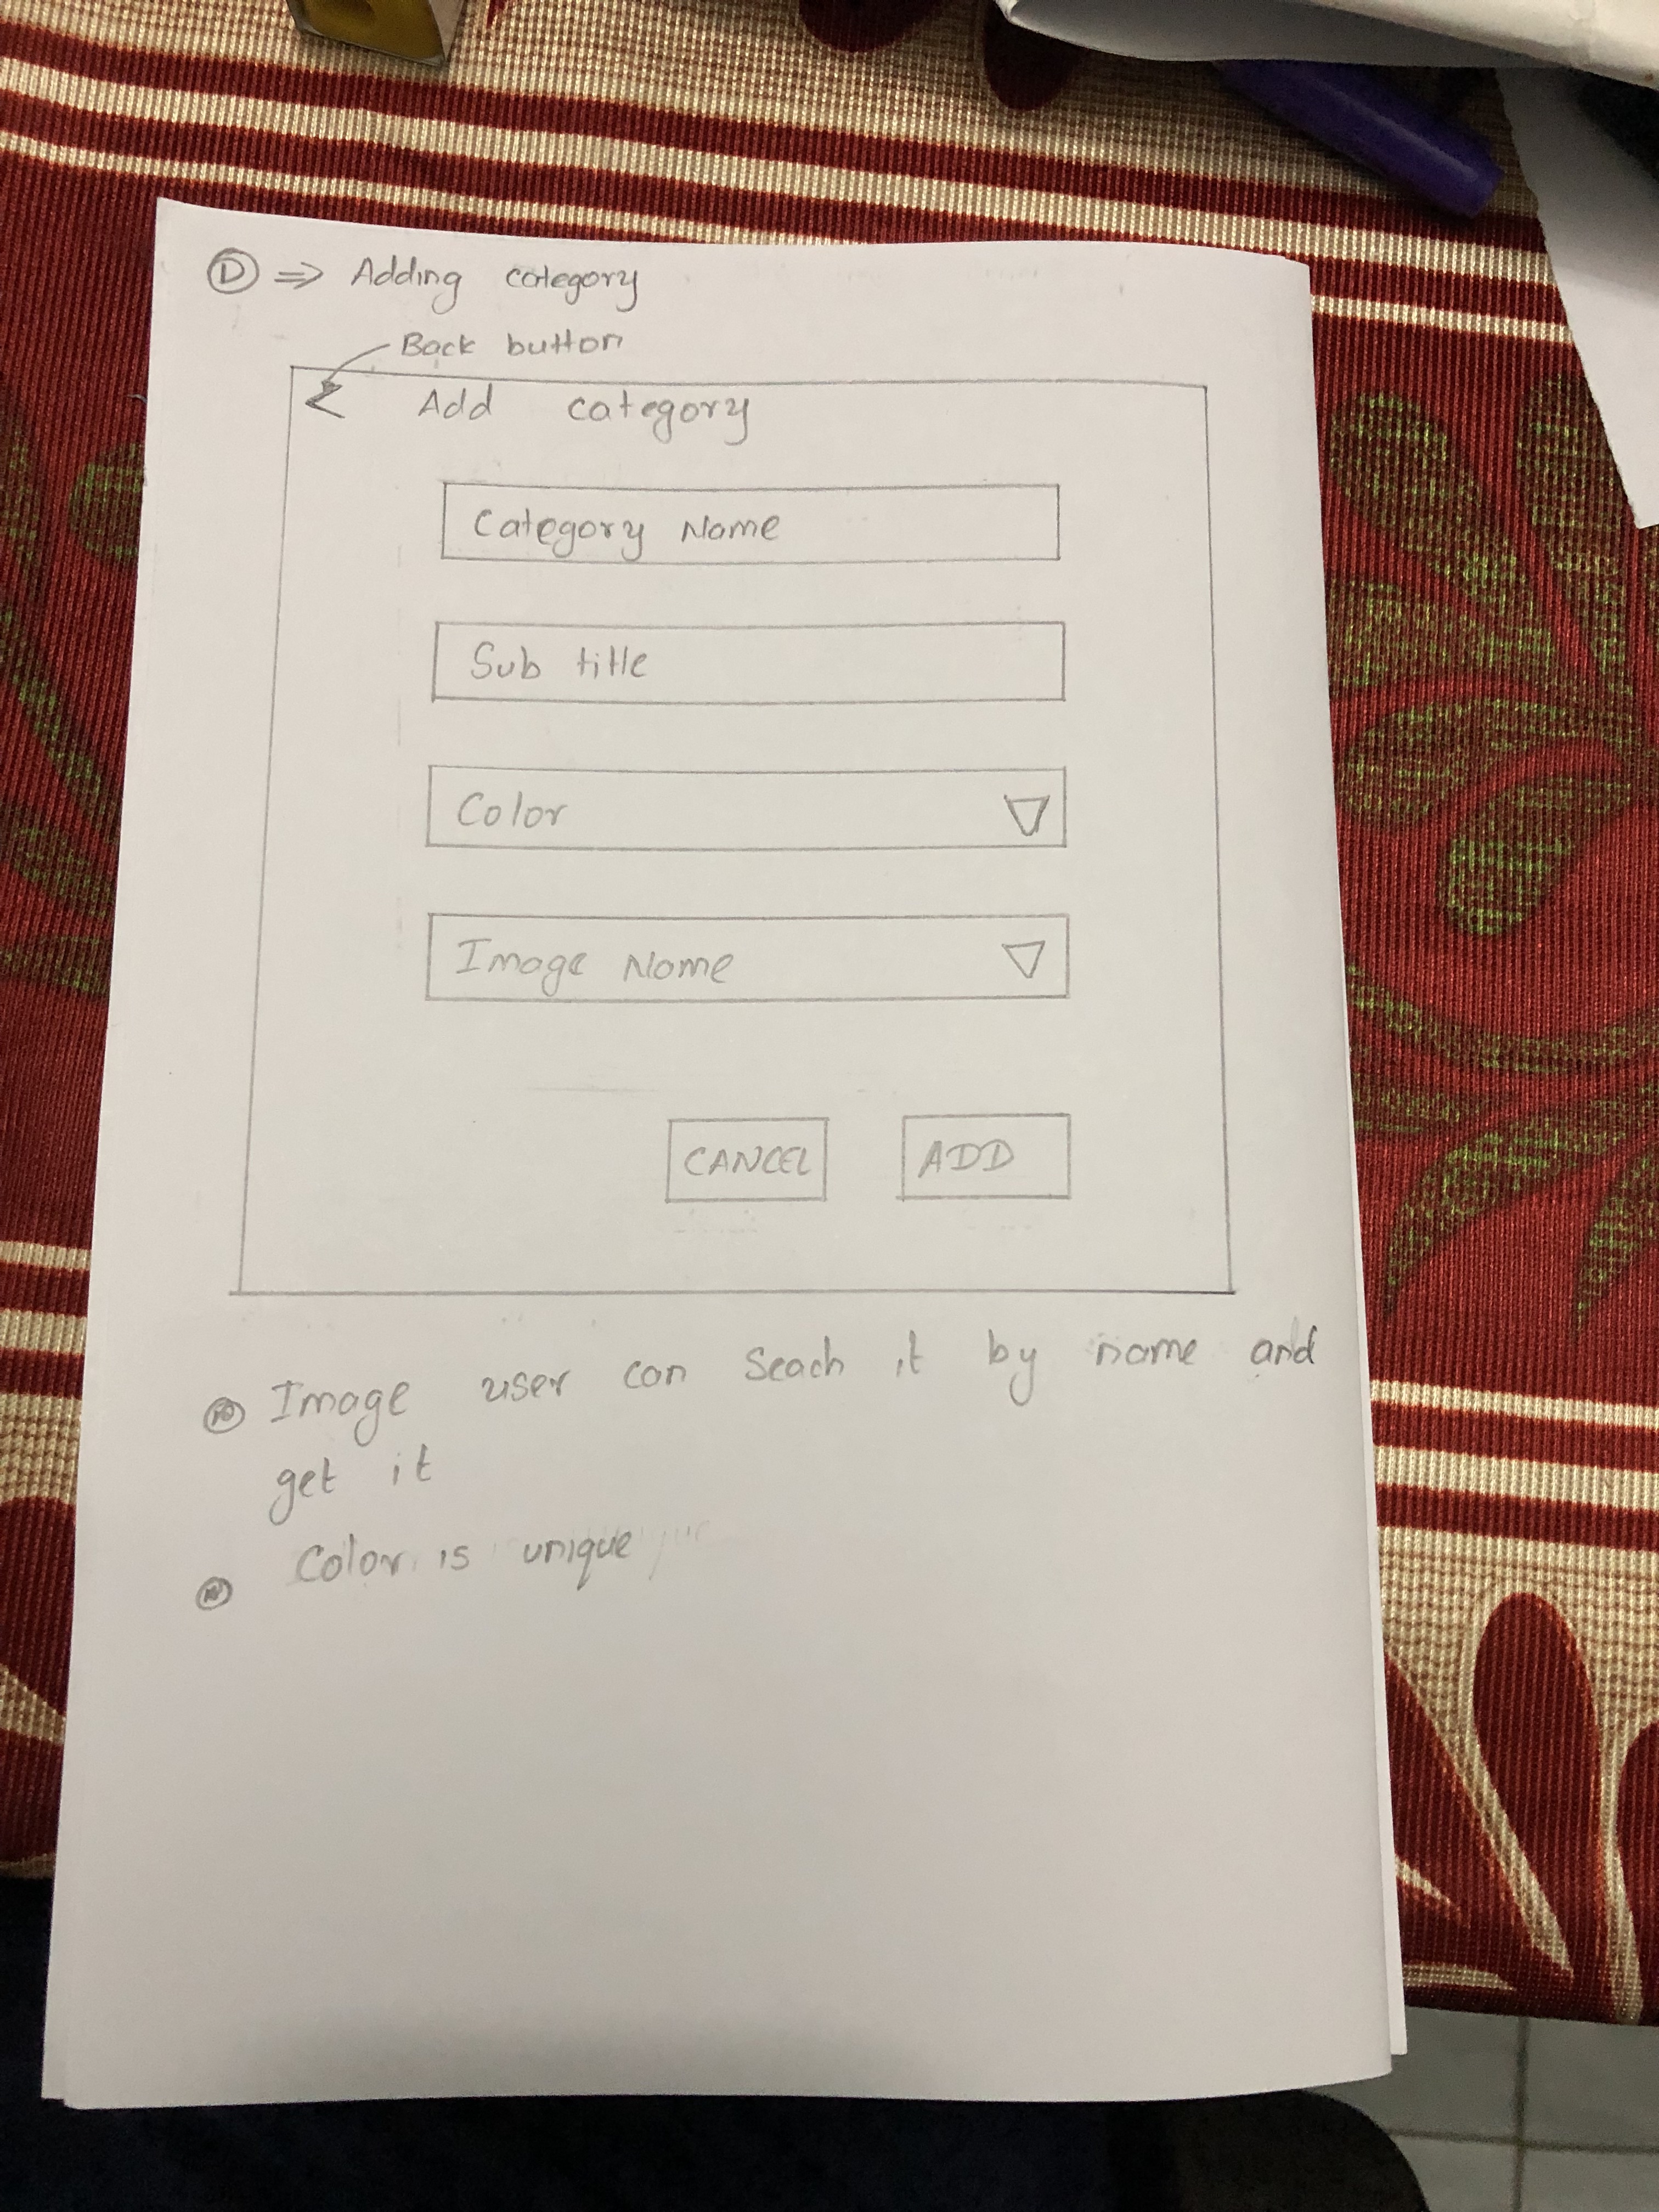 D ⇒ Adding category
Back button
< Add category
Category Name
Sub title
Color ▽
Image Name ▽
CANCEL ADD
Image user can Seach it by name and
get it
Color is unique